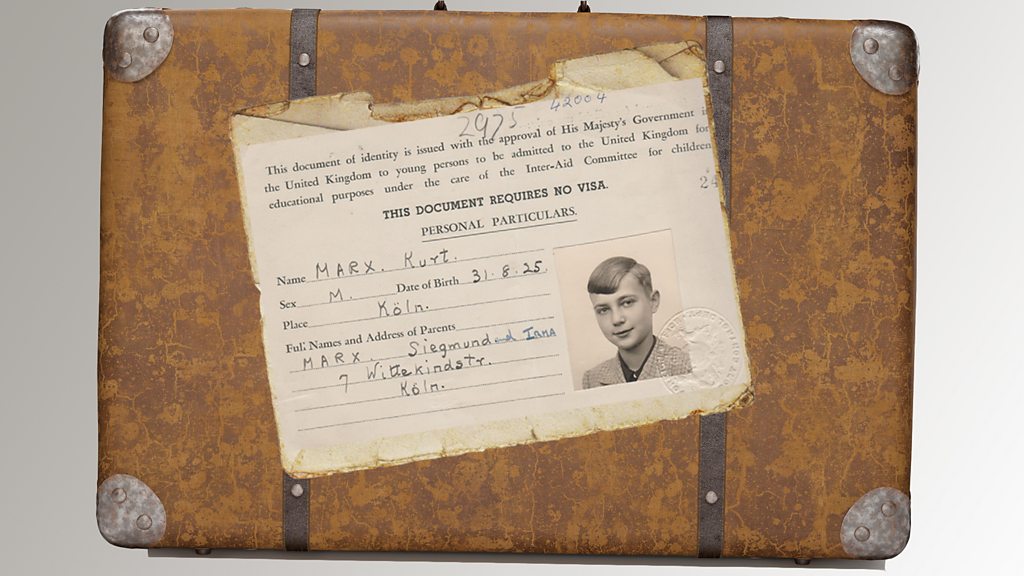 2975 42004
This document of identity is issued with the approval of His Majesty's Government in
the United Kingdom to young persons to be admitted to the United Kingdom for
educational purposes under the care of the Inter-Aid Committee for children.
24
THIS DOCUMENT REQUIRES NO VISA.
PERSONAL PARTICULARS.
Name MARX. Kurt.
Sex M. Date of Birth 31.8.25.
Place Köln.
Full Names and Address of Parents
MARX. Siegmund and IRMA
7 Wittekindstr.
Köln.